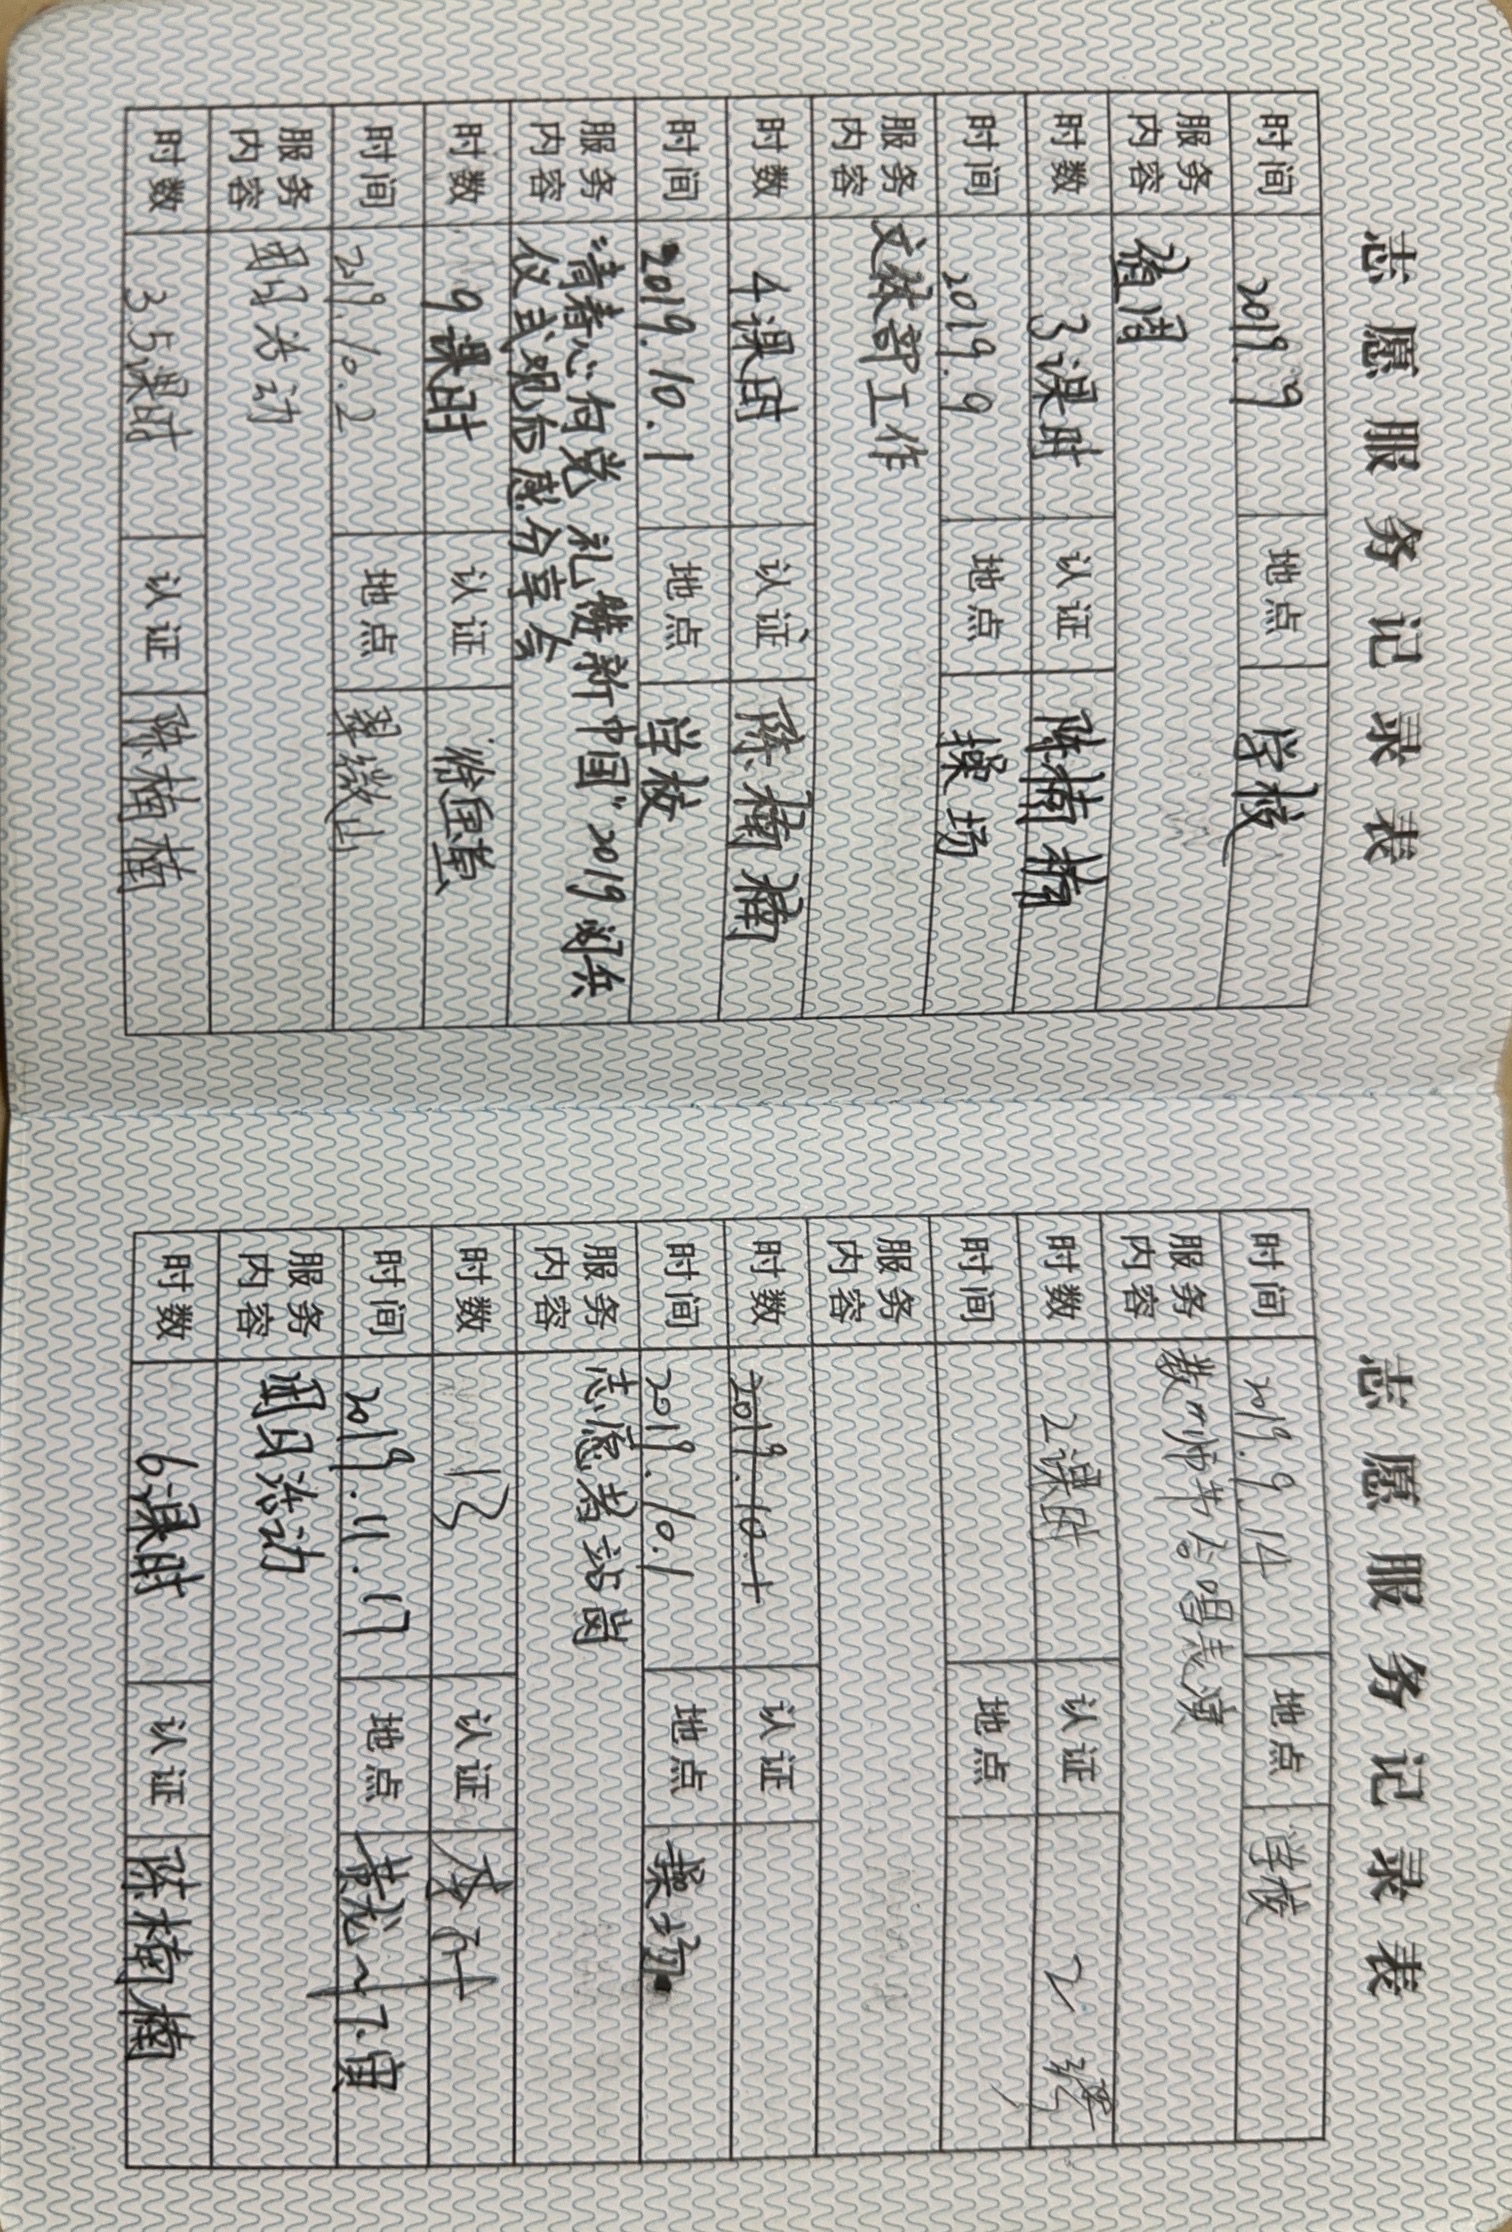 志愿服务记录表
时间 2019.9 地点 学校
服务内容 值周
时数 3课时 认证 陈楠楠
时间 2019.9 地点 操场
服务内容 文体部工作
时数 4课时 认证 陈楠楠
时间 2019.10.1 地点 学校
服务内容 “青春心向党 礼赞新中国”2019阅兵
仪式观后感分享会
时数 9课时 认证
时间 2019.10.2 地点 翠微山
服务内容 团日活动
时数 3.5课时 认证 陈楠楠
志愿服务记录表
时间 2019.9.14 地点 学校
服务内容 教师节合唱表演
时数 2课时 认证
时间 地点
服务内容
时数 2019.10.1 认证
时间 2019.10.1 地点 操场
服务内容 志愿者站岗
时数 12 认证
时间 2019.11.17 地点 黄龙
服务内容 团日活动
时数 6课时 认证 陈楠楠